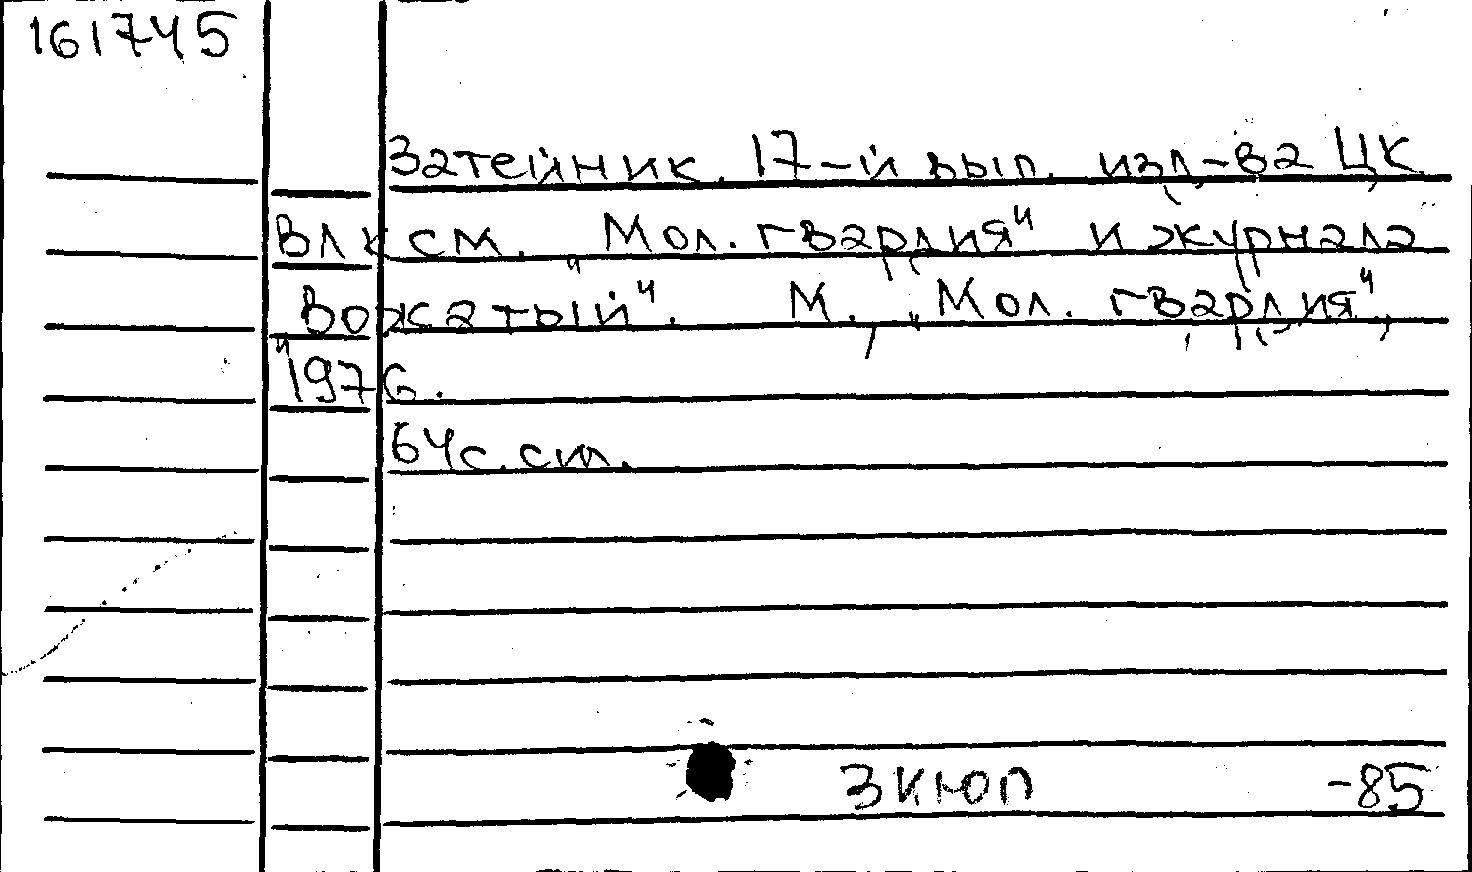 161745
Затейник. 17-й вып. изд-ва ЦК
ВЛКСМ. "Мол. гвардия" и журнала
"Вожатый". М., "Мол. гвардия",
1976.
64 с. см.
3 кюп -85